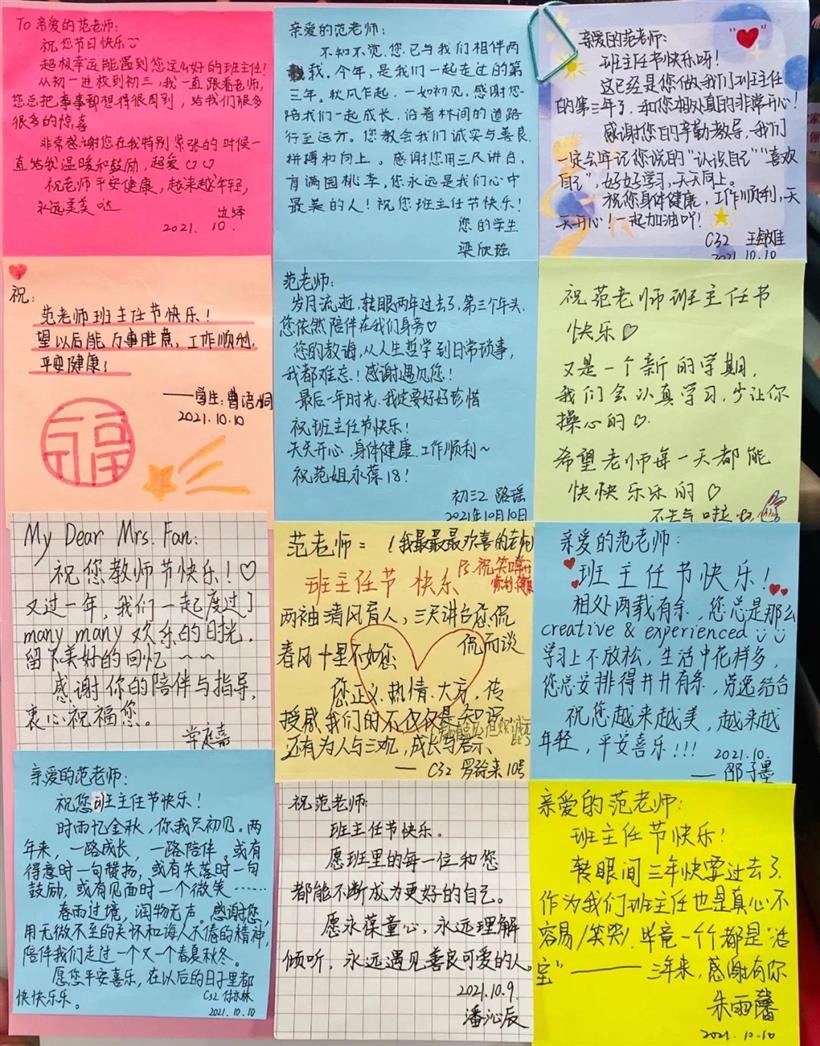 To 亲爱的范老师:
祝您节日快乐
超级幸运能遇到您这么好的班主任!
从初一进校到初三,我一直跟着老师,
您总把事事都想得很周到,给我们很多
很多的惊喜
非常感谢您在我特别紧张的时候一
直给我温暖和鼓励,超爱
祝老师平安健康,越来越年轻,
永远美美哒
2021.10.
亲爱的范老师:
不知不觉,您已与我们相伴两
载。今年,是我们一起走过的第
三年。秋风乍起,一如初见,感谢您
陪我们一起成长,沿着林间的道路
行至远方。您教会我们诚实与善良,
拼搏和向上。感谢您用三尺讲台,
育满园桃李,您永远是我们心中
最美的人!祝您班主任节快乐!
您的学生
梁欣瑶
亲爱的范老师:
班主任节快乐呀!
这已经是您做我们班主任
的第三年了,和您相处真的非常开心!
感谢您日日辛勤教导,我们
一定会牢记您说的“认识自己”“喜欢
自己”,好好学习,天天向上。
祝您身体健康,工作顺利,天
天开心!一起加油吖!
C32
2021.10.10
祝:
范老师班主任节快乐!
望以后能万事胜意,工作顺利,
平安健康!
——学生:曹语桐
2021.10.10
福
范老师:
岁月流逝,转眼两年过去了,第三个年头,
您依然陪伴在我们身旁♡
您的教诲,从人生哲学到日常琐事,
我都难忘!感谢遇见您!
最后一年时光,我定要好好珍惜
祝班主任节快乐!
天天开心,身体健康,工作顺利~
祝范姐永葆18!
初三2 路瑶
2021年10月10日
祝范老师班主任节
快乐♡
又是一个新的学期,
我们会认真学习,少让你
操心的♡
希望老师每一天都能
快快乐乐的♡
不生气啦
My Dear Mrs. Fan:
祝您教师节快乐!♡
又过一年,我们一起度过了
many many 欢乐的时光,
留下美好的回忆~~
感谢你的陪伴与指导,
衷心祝福您。
范老师:(我最最最欢喜的老师)
班主任节快乐
两袖清风育人,三尺讲台您侃
侃而谈
春风十里不如您
您正义、热情、大方,传
授感我们的不仅仅是知识
还有为人与三观,成长与启示
——C32 10号
亲爱的范老师:
班主任节快乐!
相处两载有余,您总是那么
creative & experienced
学习上不放松,生活中花样多,
您总安排得井井有条,劳逸结合
祝您越来越美,越来越
年轻,平安喜乐!!!
2021.10.
——邵子墨
亲爱的范老师:
祝您班主任节快乐!
时而忆金秋,你我只初见。两
年来,一路成长,一路陪伴。或有
得意时一句赞扬,或有失落时一句
鼓励,或有见面时一个微笑……
春雨过境,润物无声。感谢您
用无微不至的关怀和诲人不倦的精神,
陪伴我们走过一个又一个春夏秋冬。
愿您平安喜乐,在以后的日子里都
快快乐乐。
C32
2021.10.10
祝范老师:
班主任节快乐。
愿班里的每一位和您
都能不断成为更好的自己。
愿永葆童心,永远理解
倾听,永远遇见善良可爱的人
2021.10.9.
潘沁辰
亲爱的范老师:
班主任节快乐!
转眼间三年快要过去了,
作为我们班主任也是真心不
容易/笑哭/.毕竟一个个都是“活
宝”——三年来,感谢有你
朱雨馨
2021.10.10